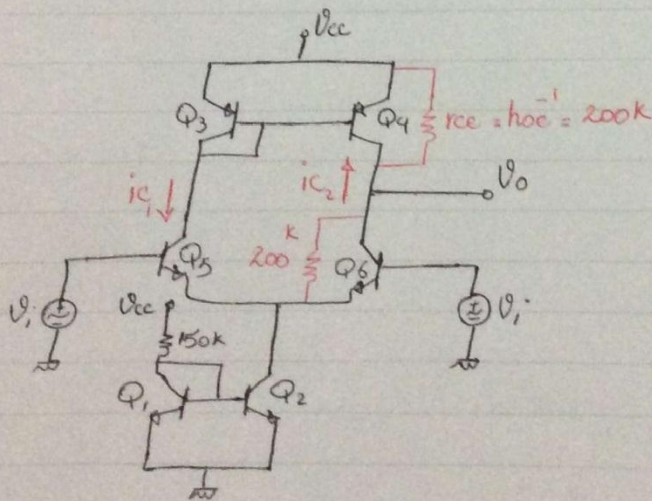 Vcc
Q3
Q4
rce = hoe⁻¹ = 200K
ic1
ic2
Vo
Q5
200K
Q6
Vi
Vcc
150k
Vi
Q1
Q2